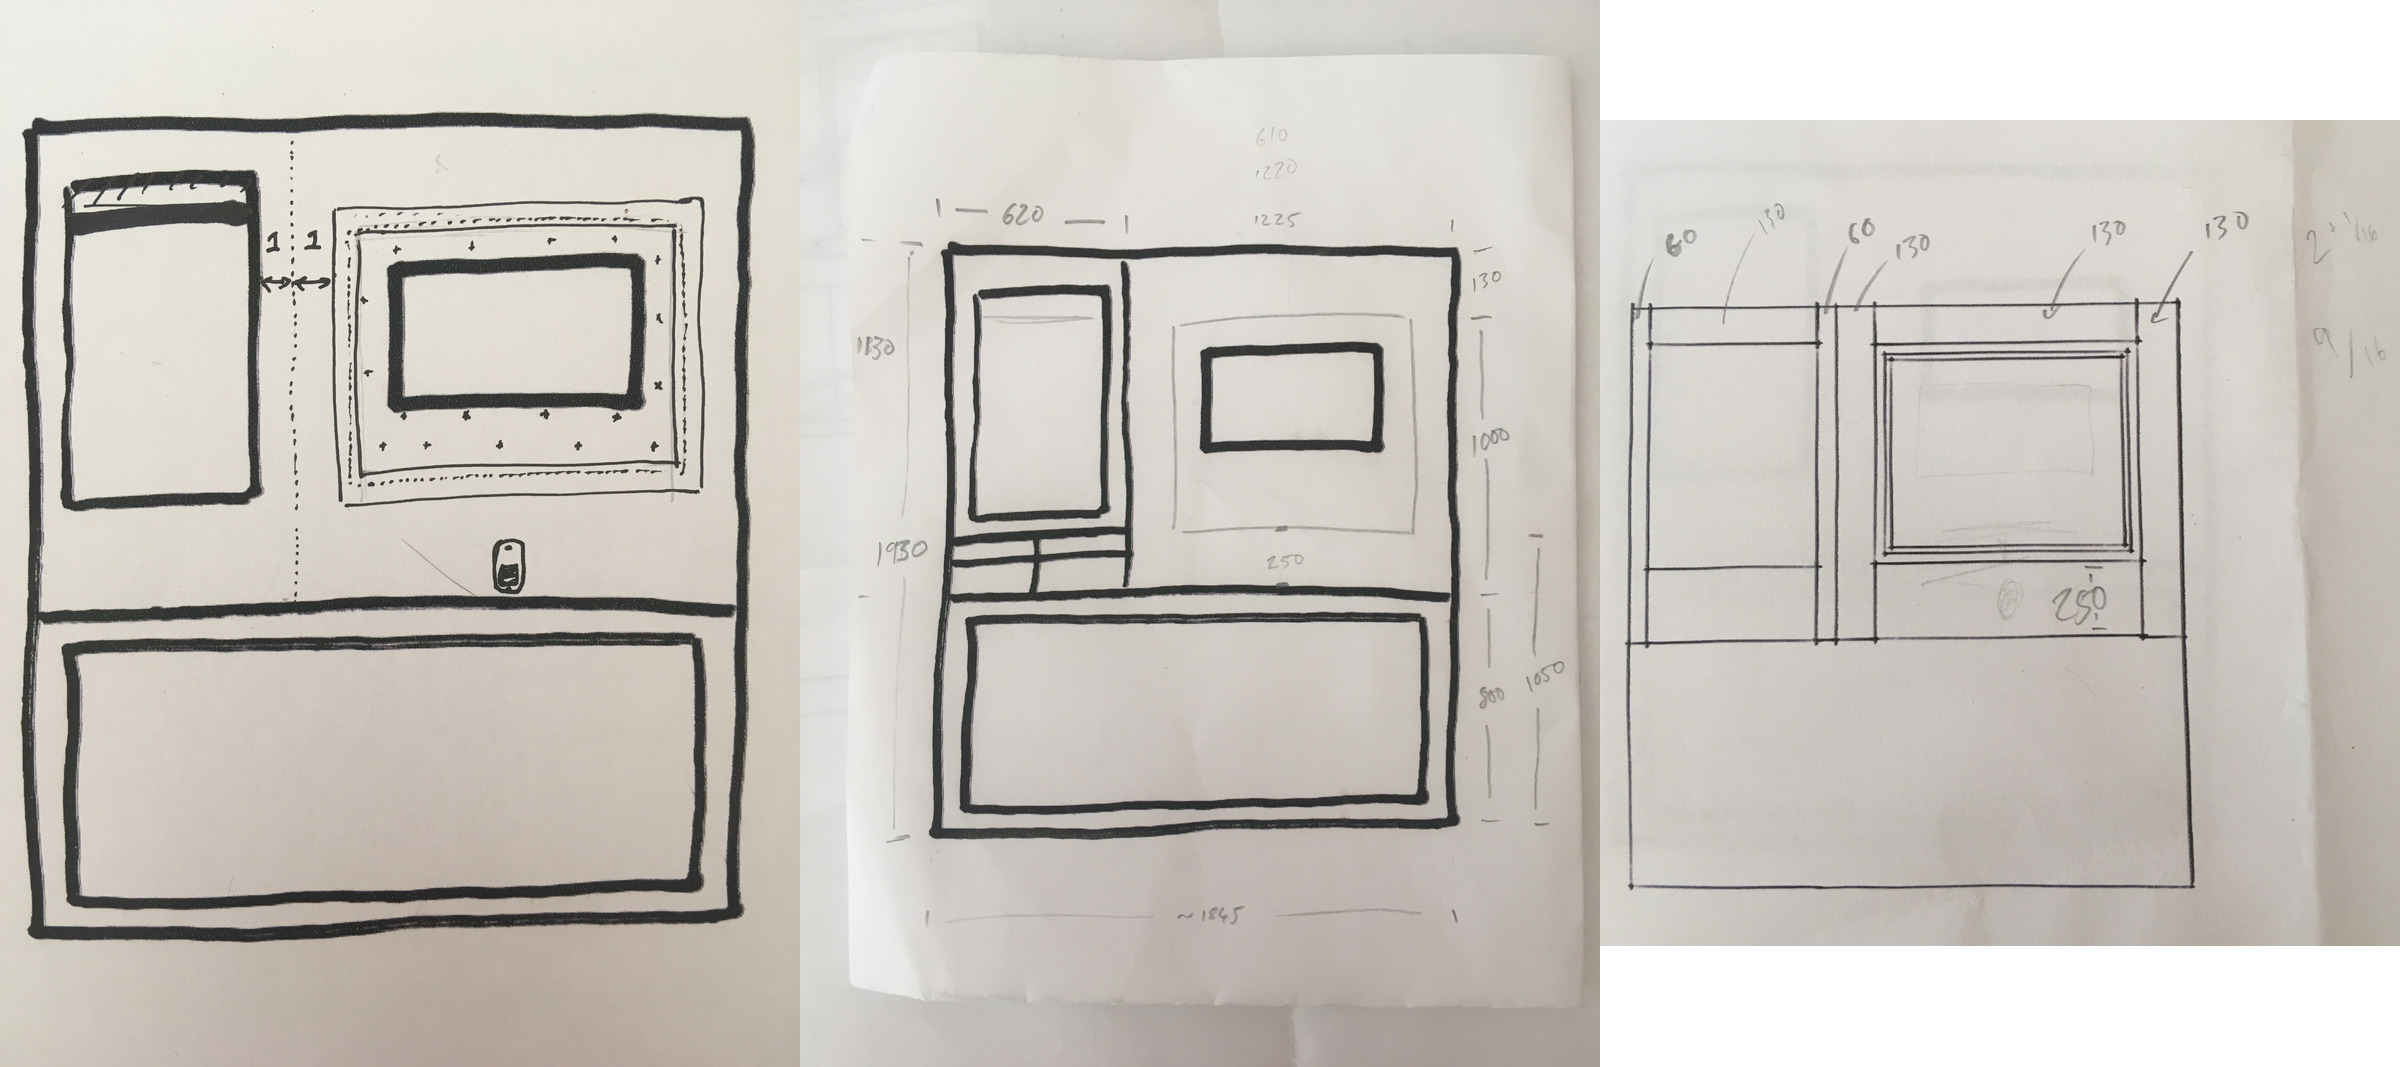 1 1
610
1220
620
1225
130
1130
1000
1930
250
1050
800
~1845
60
130
60
130
130
130
250
2" 1/16
9/16